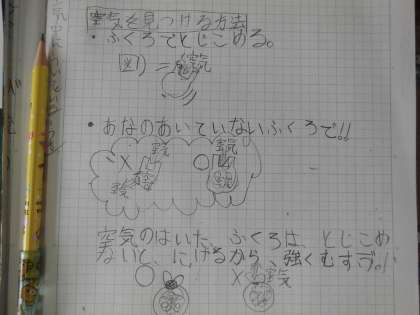 空気を見つける方法
・ふくろでとじこめる。
図1) = 空気
・あなのあいていないふくろで!!
× 空気 ○ 空気
空気
空気のはいた、ふくろは、とじこめ
ないと、にげるから、強くむすぶ!
○ × 空気